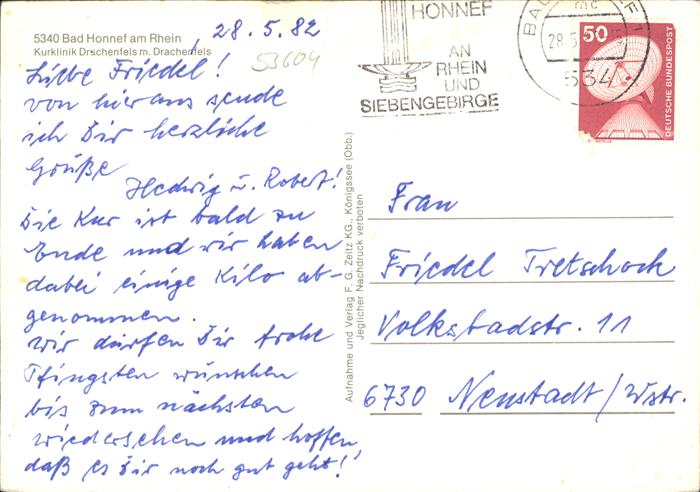 28.5.82
5340 Bad Honnef am Rhein
Kurklinik Drschenfels m. Drachenfels
53604
Liebe Friedel!
von hier aus sende
ich Dir herzliche
Grüße
Hedwig u. Robert!
Die Kur ist bald zu
Ende und wir haben
dabei einige Kilo ab-
genommen.
Wir dürfen Dir frohe
Pfingsten wünschen
bis zum nächsten
wiedersehen und hoffen,
daß es Dir noch gut geht!
Aufnahme und Verlag F. G. Zeitz KG., Königssee (Obb.)
Jeglicher Nachdruck verboten
HONNEF
AN
RHEIN
UND
SIEBENGEBIRGE
BAD
mc
28.5
534
50
DEUTSCHE BUNDESPOST
Frau
Friedel Tretschock
Volksbadstr. 11
6730 Neustadt/Wstr.